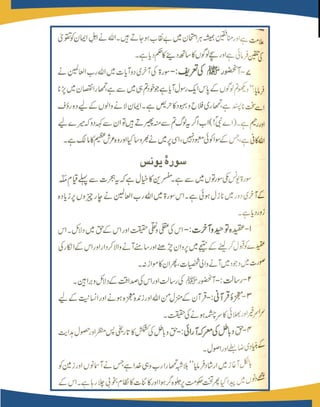 علامت ہے اور منافقین ہمیشہ ہر امتحان میں بے نقاب ہو جاتے ہیں۔ اللہ نے اہل ایمان کو تقویٰ
کی تلقین فرمائی ہے اور سچے لوگوں کا ساتھ دینے کا حکم دیا ہے۔
۷- آنحضور ﷺ کی تعریف:- سورۃ کی آخری دو آیات میں اللہ رب العالمین نے
فرمایا: "دیکھو تم لوگوں کے پاس ایک رسول آیا ہے جو خود تم ہی میں سے ہے تمہارا نقصان میں پڑنا
اسے سخت ناپسند ہے، تمہاری فلاح و بہبود کا حریص ہے۔ ایمان لانے والوں کے لیے وہ رؤف
اور رحیم ہے۔ (اے نبی!) اب اگر یہ لوگ تم سے منہ پھیرتے ہیں تو ان سے کہہ دو کہ میرے لیے
اللہ کافی ہے، جس کے سوا کوئی معبود نہیں، اسی پر میں نے بھروسا کیا اور وہ عرش عظیم کا مالک ہے۔
سورۂ یونس
سورۂ یونس مکی سورتوں میں سے ہے۔ مفسرین کا خیال ہے کہ یہ ہجرت سے پہلے قیام مکہ
کے آخری دور میں نازل ہوئی ہے۔ اس سورۃ میں اللہ رب العالمین نے چار چیزوں پر زیادہ
زور دیا ہے۔
۱- عقیدۂ توحید و آخرت:- اس کی عقلی حقیقت اور اس کے حق میں دلائل۔ اس
عقیدے کو قبول کرنے کے نتیجے میں پروان چڑھنے اور سامنے آنے والا کردار اور اس کے انکار کی
صورت میں وجود میں آنے والی شخصیات، پھر ان کا موازنہ۔
۲- رسالت:- آنحضور ﷺ کی رسالت اور اس کی صداقت کے دلائل و براہین۔
۳- معجزۂ قرآنی:- قرآن کے منزل من اللہ اور زندہ معجزہ ہونے اور انسانیت کے لیے
سراسر خیر اور بھلائی کا سرچشمہ ہونے کی حقیقت۔
۴- حق و باطل کی معرکہ آرائی:- حق و باطل کی کشمکش کا تاریخی پس منظر اور اصول ہدایت
کے بنیادی ضابطے اور اصول۔
بالکل آغاز میں ارشاد فرمایا "بلاشبہ تمہارا رب وہی خدا ہے جس نے آسمانوں اور زمین کو
چھ دنوں میں پیدا کیا، پھر تخت حکومت پر جلوہ گر ہوا اور کائنات کا نظام بخوبی چلا رہا ہے۔ اس کے